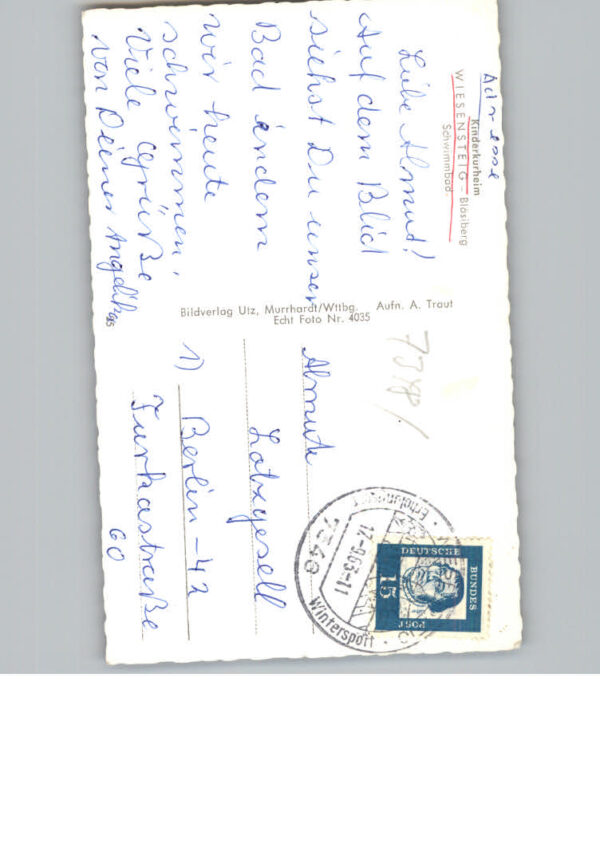 Adresse
Kinderkurheim
WIESENSTEIG - Bläsiberg
Schwimmbad
Liebe Almut!
Auf dem Bild
siehst Du unser
Bad in dem
wir heute
schwimmen.
Viele Grüße
von Deiner Angelika
Bildverlag Utz, Murrhardt/Wttbg. Aufn. A. Traut
Echt Foto Nr. 4035
Almut
Lotzgesell
1) Berlin - 42
Furkastraße
60
17.-9.63-11
7346
Wintersport
DEUTSCHE
BUNDES
POST
15